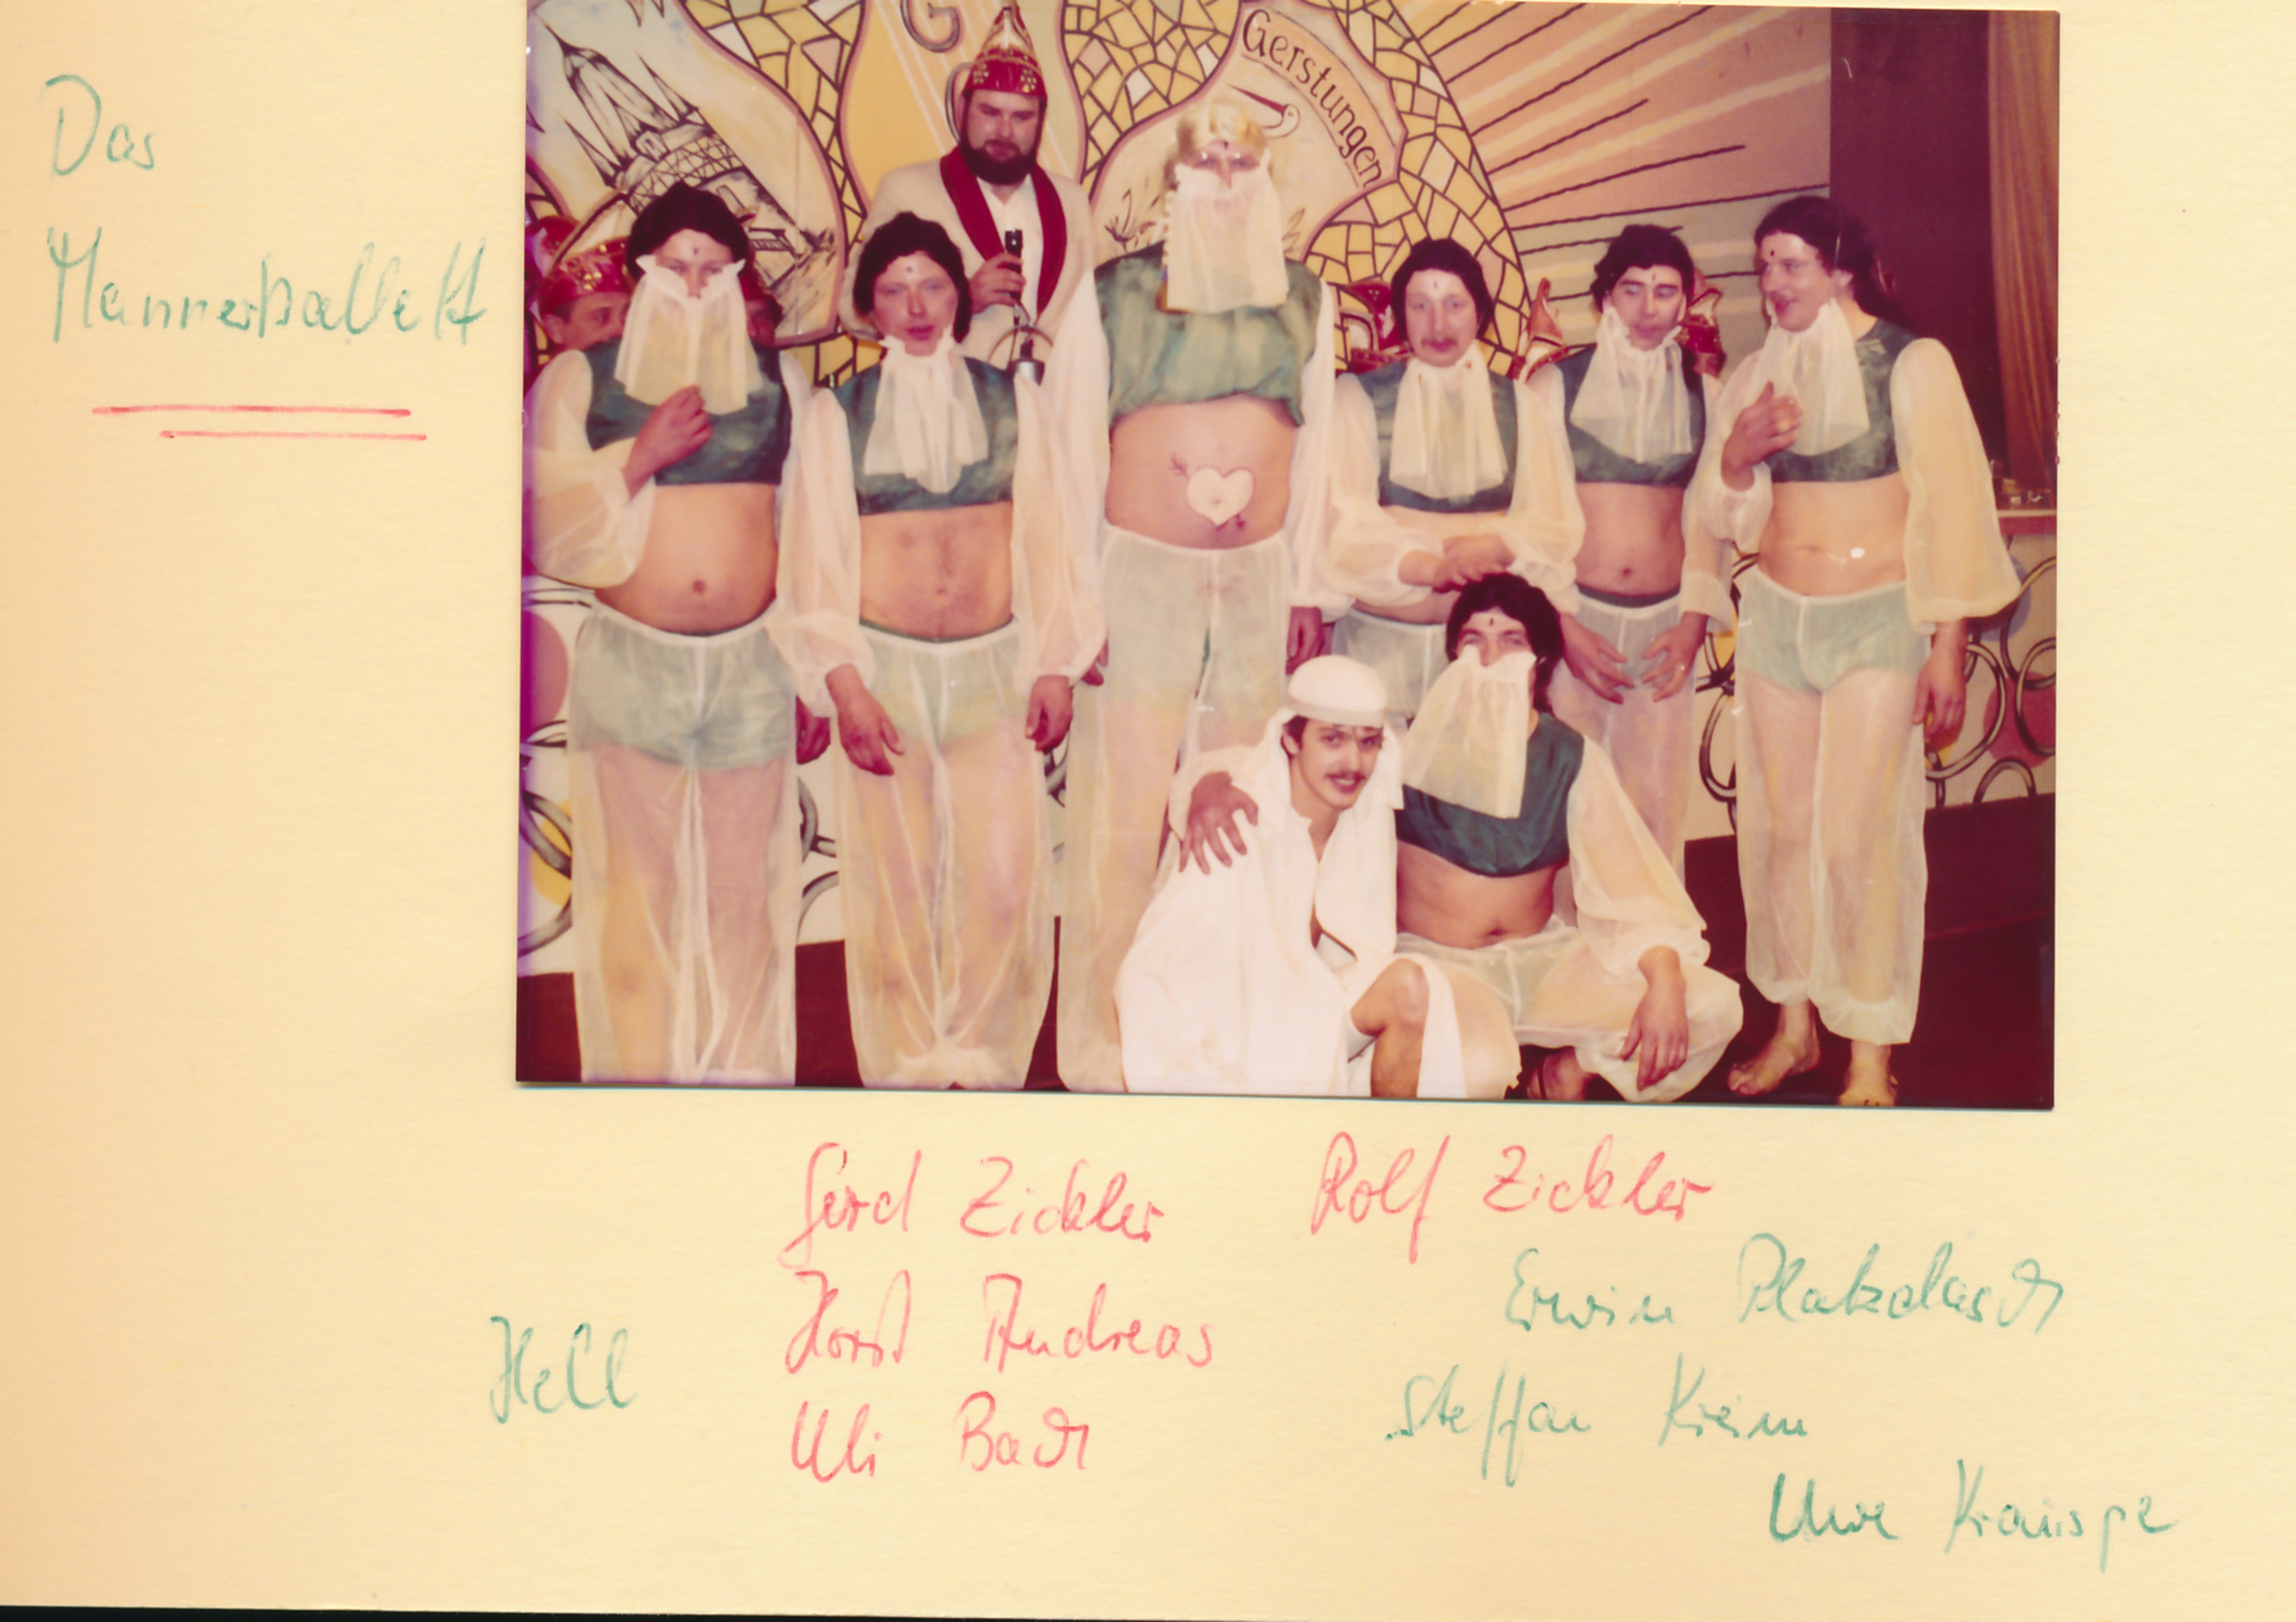 Das
Männerballett
G
Gerstungen
Gerd Zickler Rolf Zickler
Horst Andreas Erwin Platzdasch
Hell Steffan Kreim
Uli Bach
Uwe Krauspe